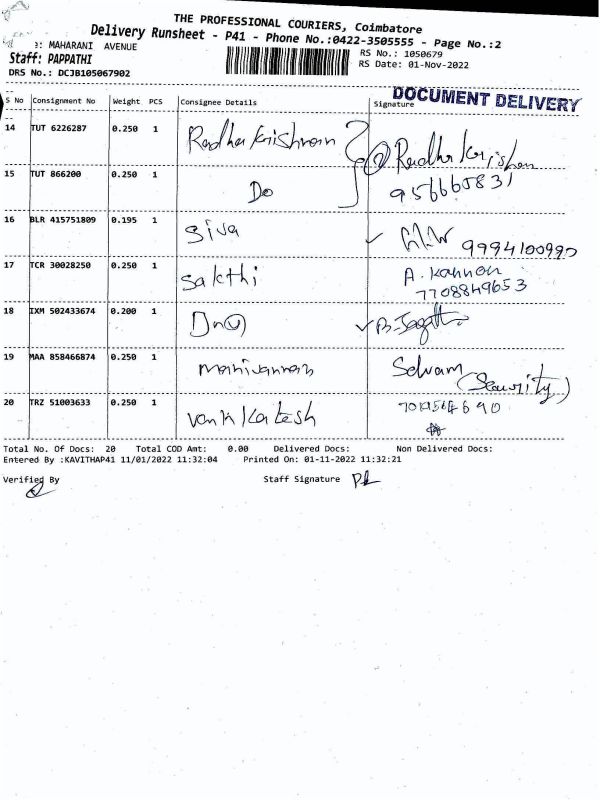 THE PROFESSIONAL COURIERS, Coimbatore
Delivery Runsheet - P41 - Phone No.:0422-3505555 - Page No.:2
: MAHARANI AVENUE
RS No.: 1050679
Staff: PAPPATHI
RS Date: 01-Nov-2022
DRS No.: DCJB105067902
DOCUMENT DELIVERY
S No Consignment No Weight PCS Consignee Details Signature
14 TUT 6226287 0.250 1 Radha Krishnan Radha Krishnan
15 TUT 866200 0.250 1 Do
16 BLR 415751809 0.195 1 Siva 9994100990
17 TCR 30028250 0.250 1 Sakthi A. Kannan
7708849653
18 IXM 502433674 0.200 1
19 MAA 858466874 0.250 1 Manivannan Selvam (Security)
20 TRZ 51003633 0.250 1 Vankkatesh
Total No. Of Docs: 20 Total COD Amt: 0.00 Delivered Docs: Non Delivered Docs:
Entered By :KAVITHAP41 11/01/2022 11:32:04 Printed On: 01-11-2022 11:32:21
Verified By Staff Signature